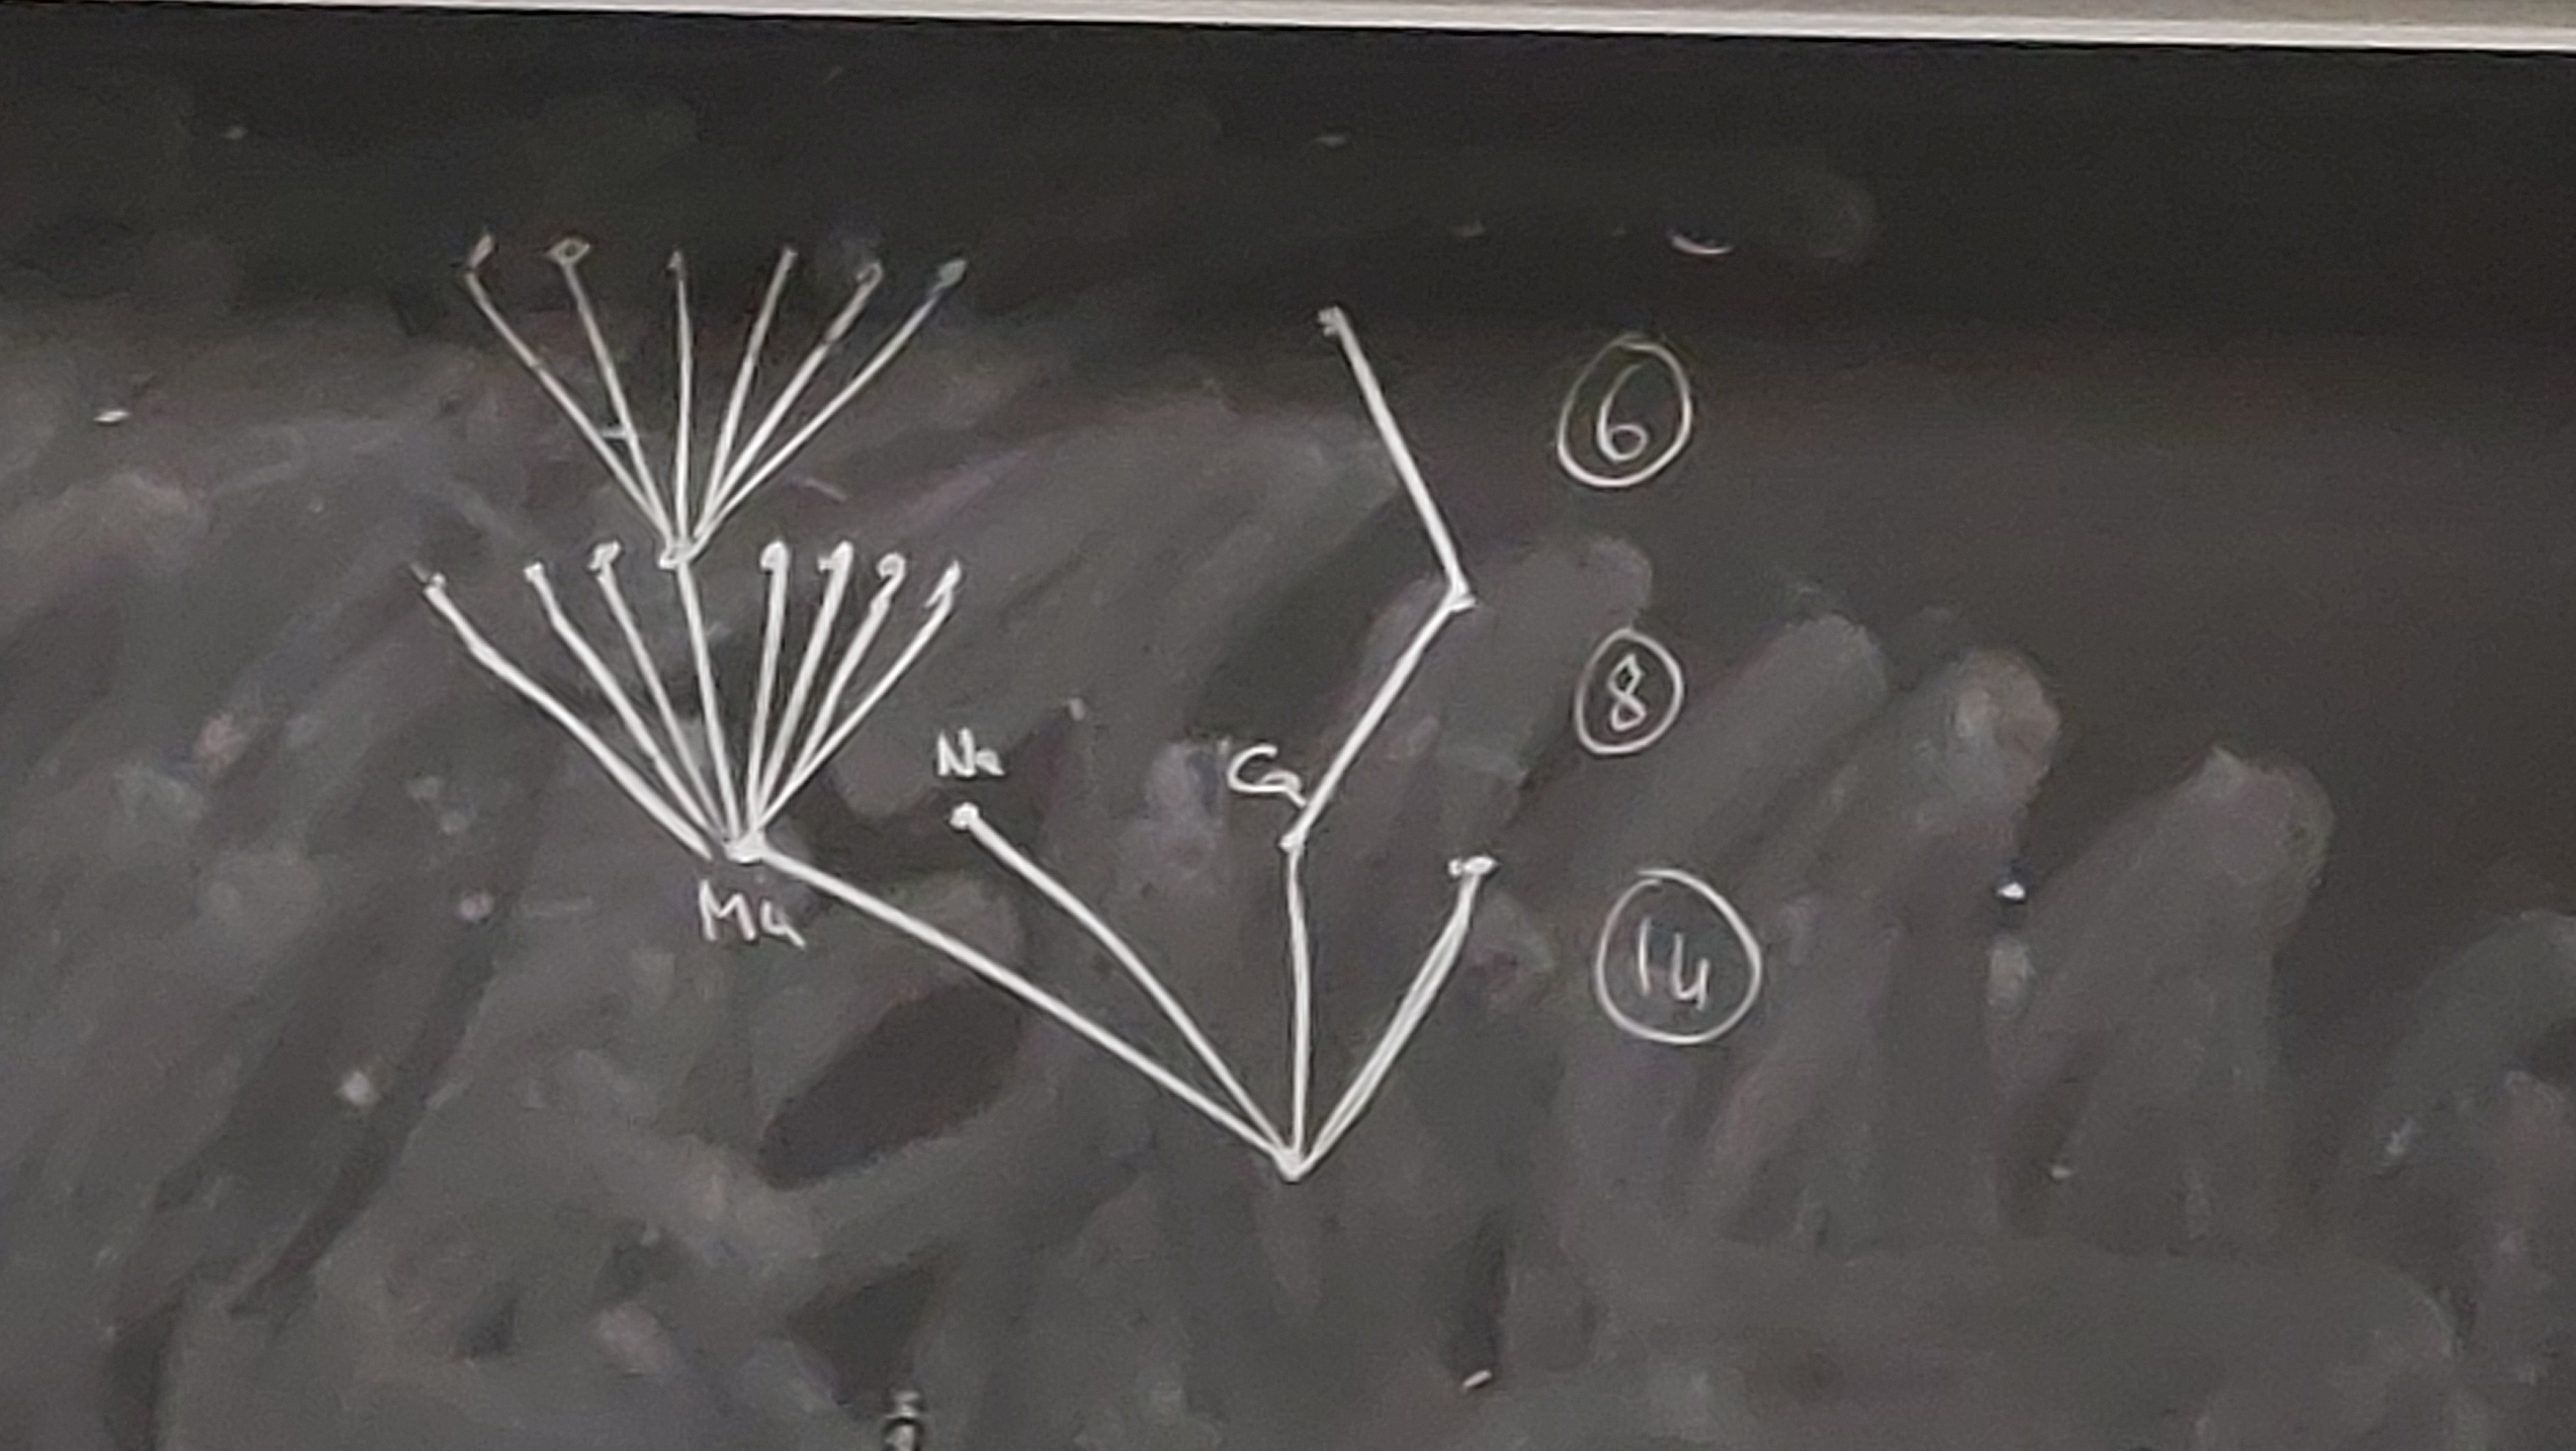 6
8
Na
Ca
Ma
14